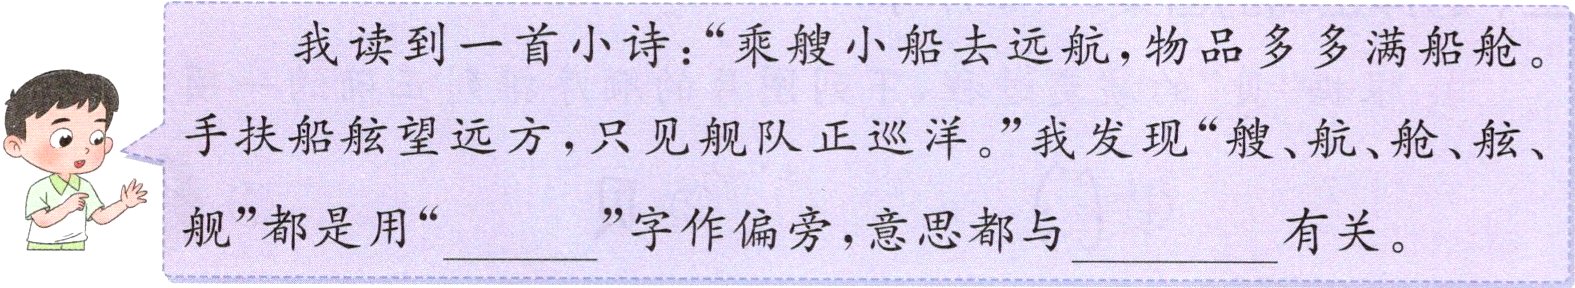 我读到一首小诗：“乘艘小船去远航，物品多多满船舱。
手扶船舷望远方，只见舰队正巡洋。”我发现“艘、航、舱、舷、
舰”都是用“________”字作偏旁，意思都与__________有关。